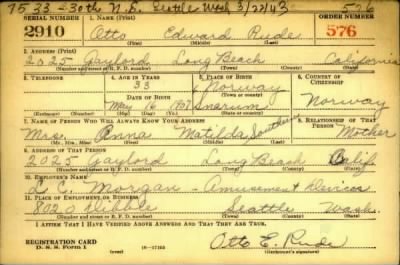 7533 - 30th N.E. Seattle Wash 3/22/43 576
SERIAL NUMBER 1. NAME (Print) ORDER NUMBER
2910 Otto Edward Rude 576
(First) (Middle) (Last)
2. ADDRESS (Print)
2025 Gaylord Long Beach California
(Number and street or R. F. D. number) (Town) (County) (State)
3. TELEPHONE 4. AGE IN YEARS 5. PLACE OF BIRTH 6. COUNTRY OF CITIZENSHIP
33 Norway
DATE OF BIRTH (Town or county)
May 16 1907 Snarum Norway
(Exchange) (No.) (Mo.) (Day) (Yr.) (State or country)
7. NAME OF PERSON WHO WILL ALWAYS KNOW YOUR ADDRESS 8. RELATIONSHIP OF THAT PERSON
Mrs. Anna Matilda Mother
(Mr., Mrs., Miss) (First) (Middle) (Last)
9. ADDRESS OF THAT PERSON
2025 Gaylord Long Beach Calif
(Number and street or R. F. D. number) (Town) (County) (State)
10. EMPLOYER'S NAME
L. C. Morgan - Amusement Devices
11. PLACE OF EMPLOYMENT OR BUSINESS
8020 Dibble Seattle Wash.
(Number and street or R. F. D. number) (Town) (County) (State)
I AFFIRM THAT I HAVE VERIFIED ABOVE ANSWERS AND THAT THEY ARE TRUE.
REGISTRATION CARD
D. S. S. Form 1 (over) 16-17105 Otto E. Rude
(Registrant's signature)